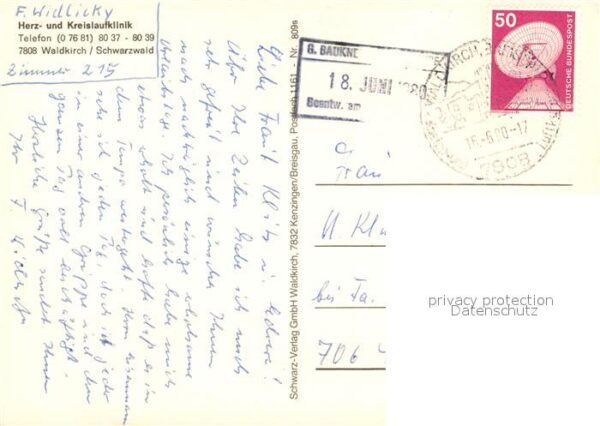 F. Widlicky
Herz- und Kreislaufklinik
Telefon (0 76 81) 80 37 - 80 39
7808 Waldkirch / Schwarzwald
Zimmer 215
Über Ihre Zeilen habe ich mich
sehr gefreut und wünsche Ihnen
nach nachträglich einige erholsame
Urlaubstage. Ich persönlich habe mich
etwas erholt und hoffe daß es in
dem Tempo weitergeht. Ihren
sehe ich jeden Tag, doch ist jeder
in einer anderen Gruppe und den
ganzen Tag voll beschäftigt.
Herzliche Grüße sendet Ihnen
Ihr F. Widlicky
Schwarz-Verlag GmbH Waldkirch, 7832 Kenzingen/Breisgau, Postfach 1161 - Nr. 809s
G. BAUKNE
18. JUNI 1980
Beantw. am
50
DEUTSCHE BUNDESPOST
16.-6.80-17
7808
Frau
U. Kl
bei Fa.
706
privacy protection
Datenschutz